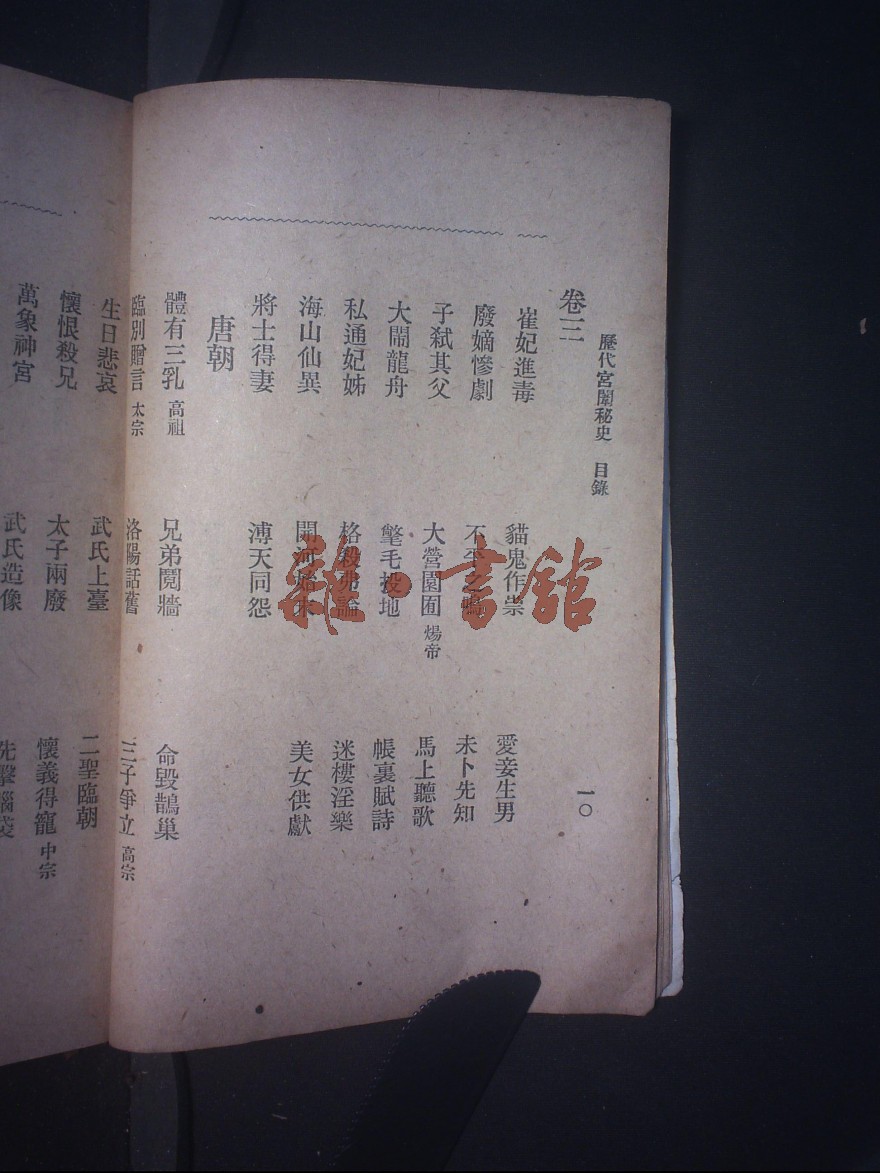 歷代宮闈秘史 目錄 一〇
卷三
崔妃進毒 貓鬼作祟 愛妾生男
廢嫡慘劇 不平之鳴 未卜先知
子弒其父 大營園囿 煬帝 馬上聽歌
大鬧龍舟 氅毛投地 帳裏賦詩
私通妃姊 格殺弗論 迷樓淫樂
海山仙異 開河始末 美女供獻
將士得妻 溥天同怨
唐朝
體有三乳 高祖 兄弟鬩牆 命毀鵲巢
臨別贈言 太宗 洛陽話舊 三子爭立 高宗
生日悲哀 武氏上臺 二聖臨朝
懷恨殺兄 太子兩廢 懷義得寵 中宗
萬象神宮 武氏造像
雜·書館